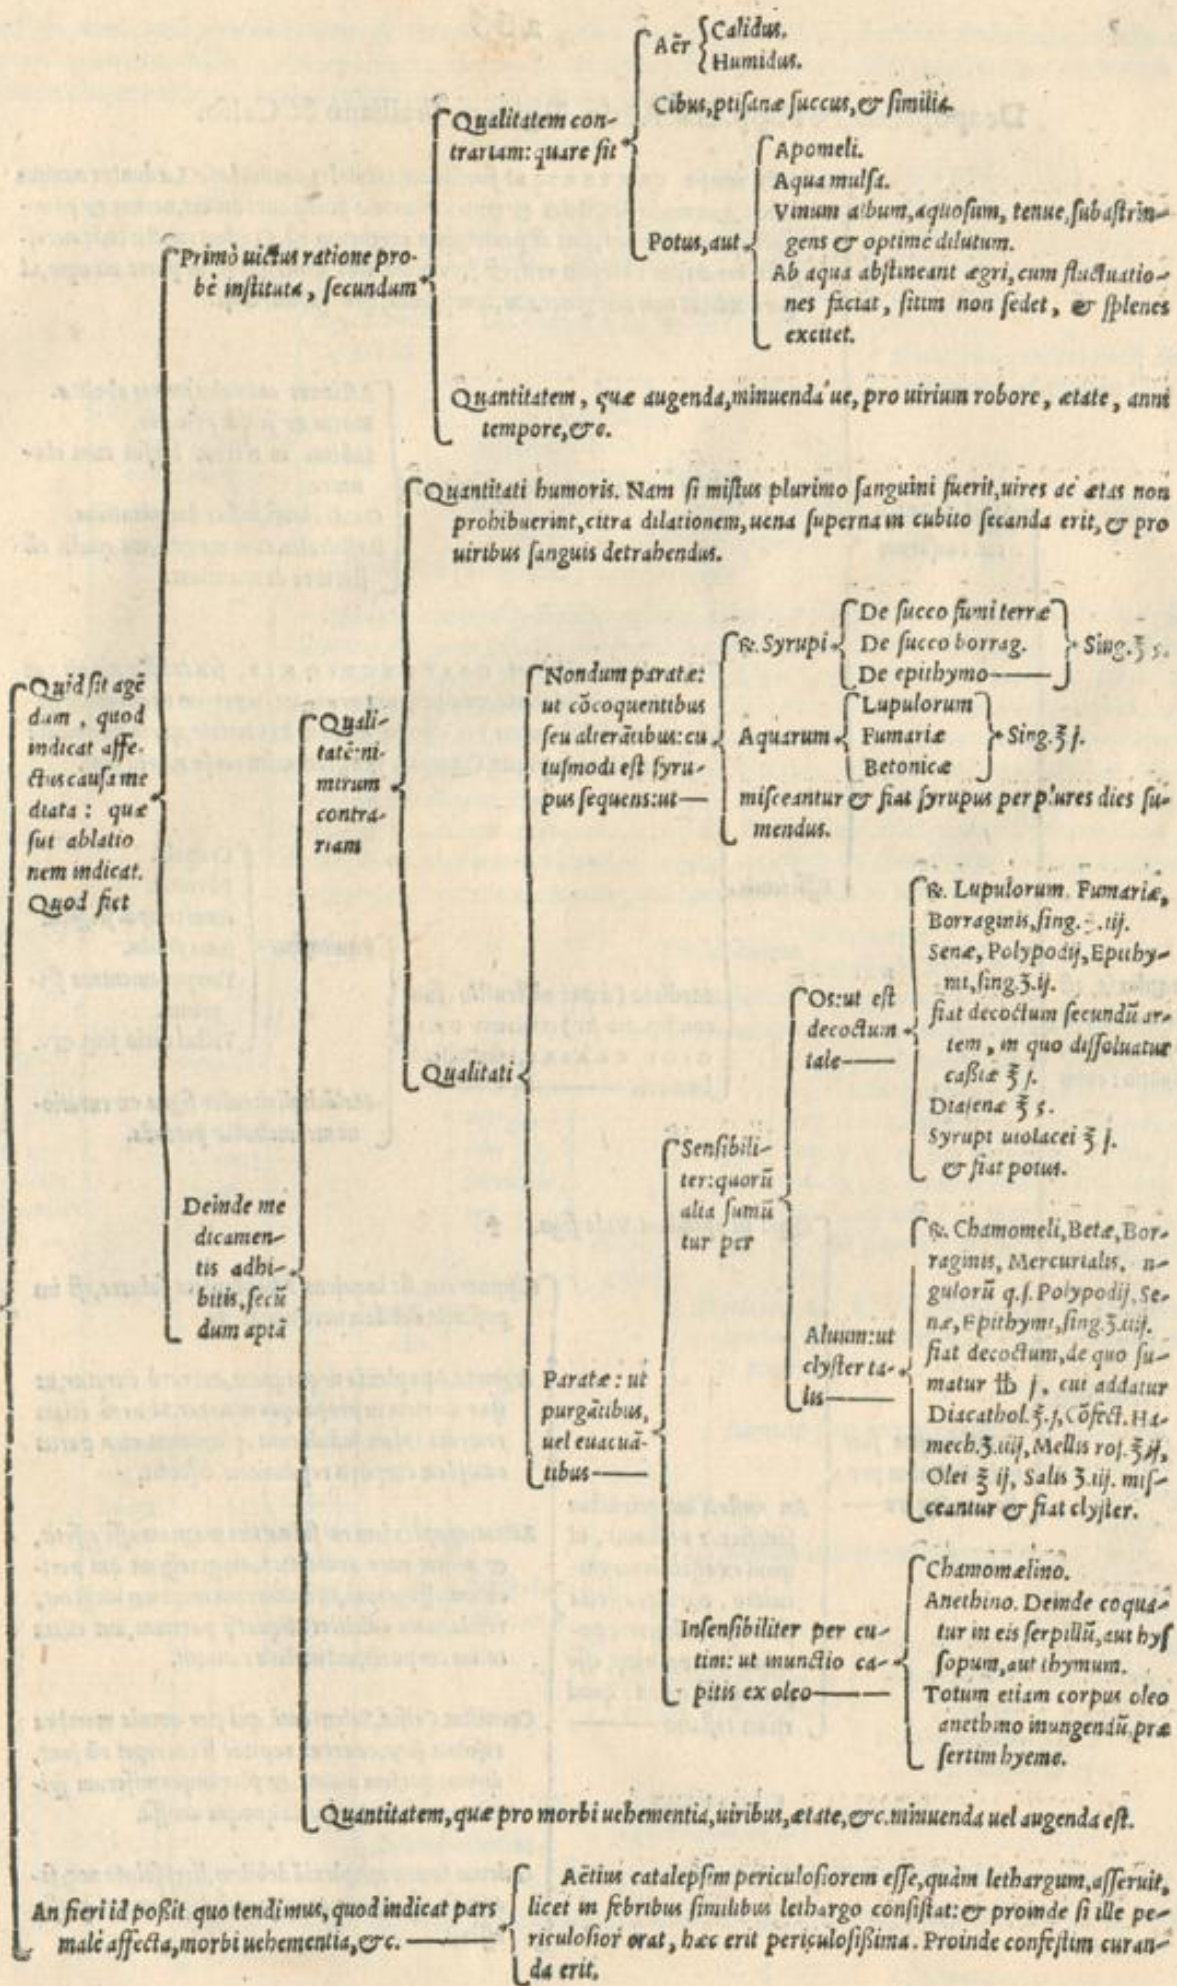 Quid sit agē
dum, quod
indicat affe-
ctus causa me
diata: quæ
sui ablatio
nem indicat.
Quod fiet
Primò uictus ratione pro-
bè instituta, secundum
Qualitatem con-
trariam: quare sit
Aër
Calidus.
Humidus.
Cibus, ptisanæ succus, & similia.
Potus, aut
Apomeli.
Aqua mulsa.
Vinum album, aquosum, tenue, subastrin-
gens & optimè dilutum.
Ab aqua abstineant ægri, cum fluctuatio-
nes faciat, sitim non sedet, & splenes
excitet.
Quantitatem, quæ augenda, minuenda ue, pro uirium robore, ætate, anni
tempore, &c.
Deinde me
dicamen-
tis adhi-
bitis, secū
dum aptā
Quali-
tatē: ni-
mirum
contra-
riam
Quantitati humoris. Nam si mistus plurimo sanguini fuerit, uires ac ætas non
prohibuerint, citra dilationem, uena superna in cubito secanda erit, & pro
uiribus sanguis detrahendus.
Qualitati
Nondum paratæ:
ut cōcoquentibus
seu alterātibus: cu
iusmodi est syru-
pus sequens: ut
℞. Syrupi
De succo fumi terræ
De succo borrag.
De epithymo
Sing. ℥ s.
Aquarum
Lupulorum
Fumariæ
Betonicæ
Sing. ℥ j.
misceantur & fiat syrupus per plures dies su-
mendus.
Paratæ: ut
purgātibus,
uel euacuā-
tibus
Sensibili-
ter: quorū
alia sumū
tur per
Os: ut est
decoctum
tale
℞. Lupulorum, Fumariæ,
Borraginis, sing. iij.
Senæ, Polypodij, Epithy-
mi, sing. ʒ. ij.
fiat decoctum secundū ar-
tem, in quo dissoluatur
cassiæ ℥ j.
Diasenæ ℥ s.
Syrupi uiolacei ℥ j.
& fiat potus.
Aluum: ut
clyster ta-
lis
℞. Chamomeli, Betæ, Bor-
raginis, Mercurialis, n-
gulorū q. s. Polypodij, Se-
næ, Epithymi, sing. ʒ. iij.
fiat decoctum, de quo su-
matur ℔ j, cui addatur
Diacathol. ℥. j, Cōfect. Ha-
mech. ʒ. iij, Mellis ros. ℥ ij,
Olei ℥ ij, Salis ʒ. iij. mis-
ceantur & fiat clyster.
Insensibiliter per cu-
tim: ut inunctio ca-
pitis ex oleo
Chamomælino.
Anethino. Deinde coqua-
tur in eis serpillū, aut hys
sopum, aut thymum.
Totum etiam corpus oleo
anethino inungendū, præ
sertim hyeme.
Quantitatem, quæ pro morbi uehementia, uiribus, ætate, &c. minuenda uel augenda est.
An fieri id possit quo tendimus, quod indicat pars
malè affecta, morbi uehementia, &c.
Aëtius catalepsim periculosiorem esse, quàm lethargum, asseruit,
licet in febribus similibus lethargo consistat: & proinde si ille pe-
riculosior erat, hæc erit periculosissima. Proinde confestim curan-
da erit.